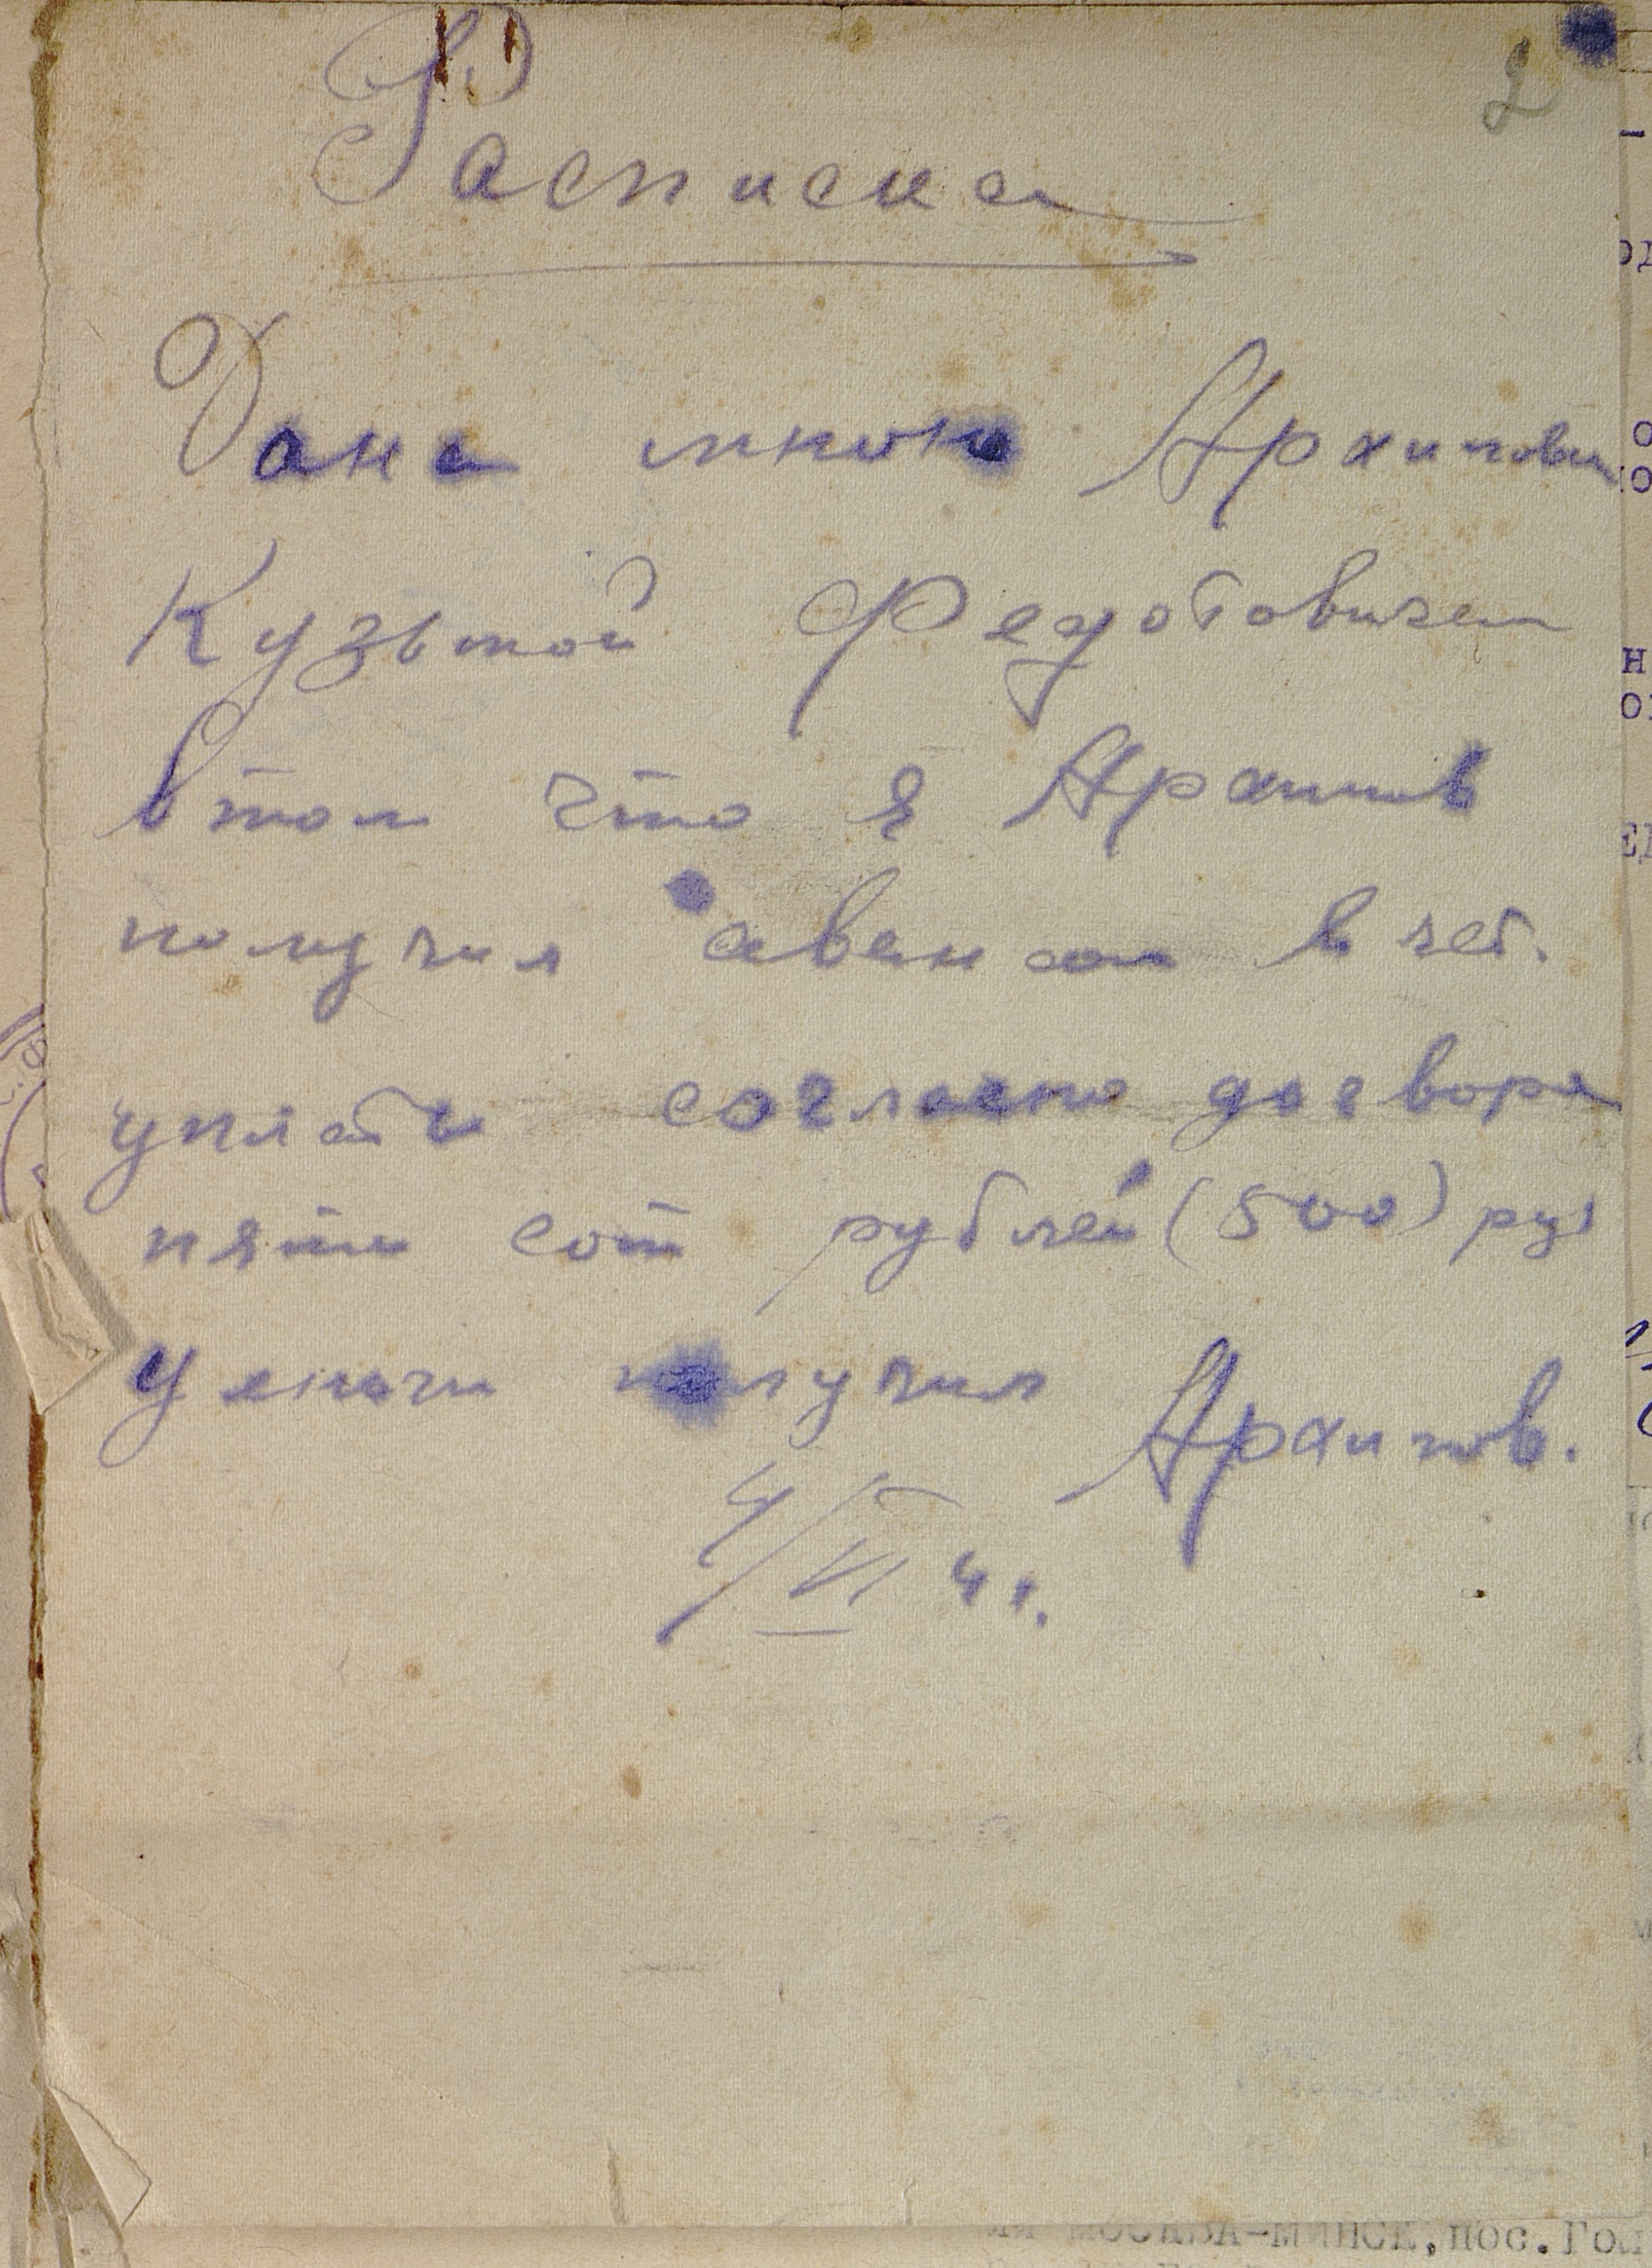 2
Расписка
Дана мною Архиповым
Кузьмой Федотовичем
в том что я Архипов
получил авансом в чет.
уплаты согласно договора
пяти сот рублей (500) руб
Деньги получил Архипов.
4/VI 41.
МОСКВА-МИНСК, пос. Гол